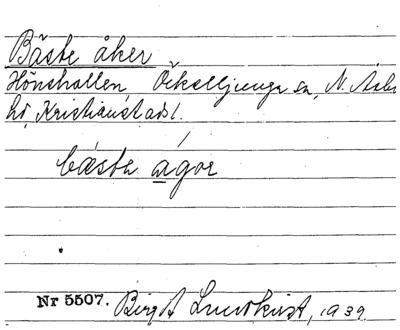 Bäste åker
Hönshallen, Örkelljunga sn, N. Åsbo
hd, Kristianstads l.
bæ´sta a´gər
Nr 5507. Birgit Lundkvist, 1939